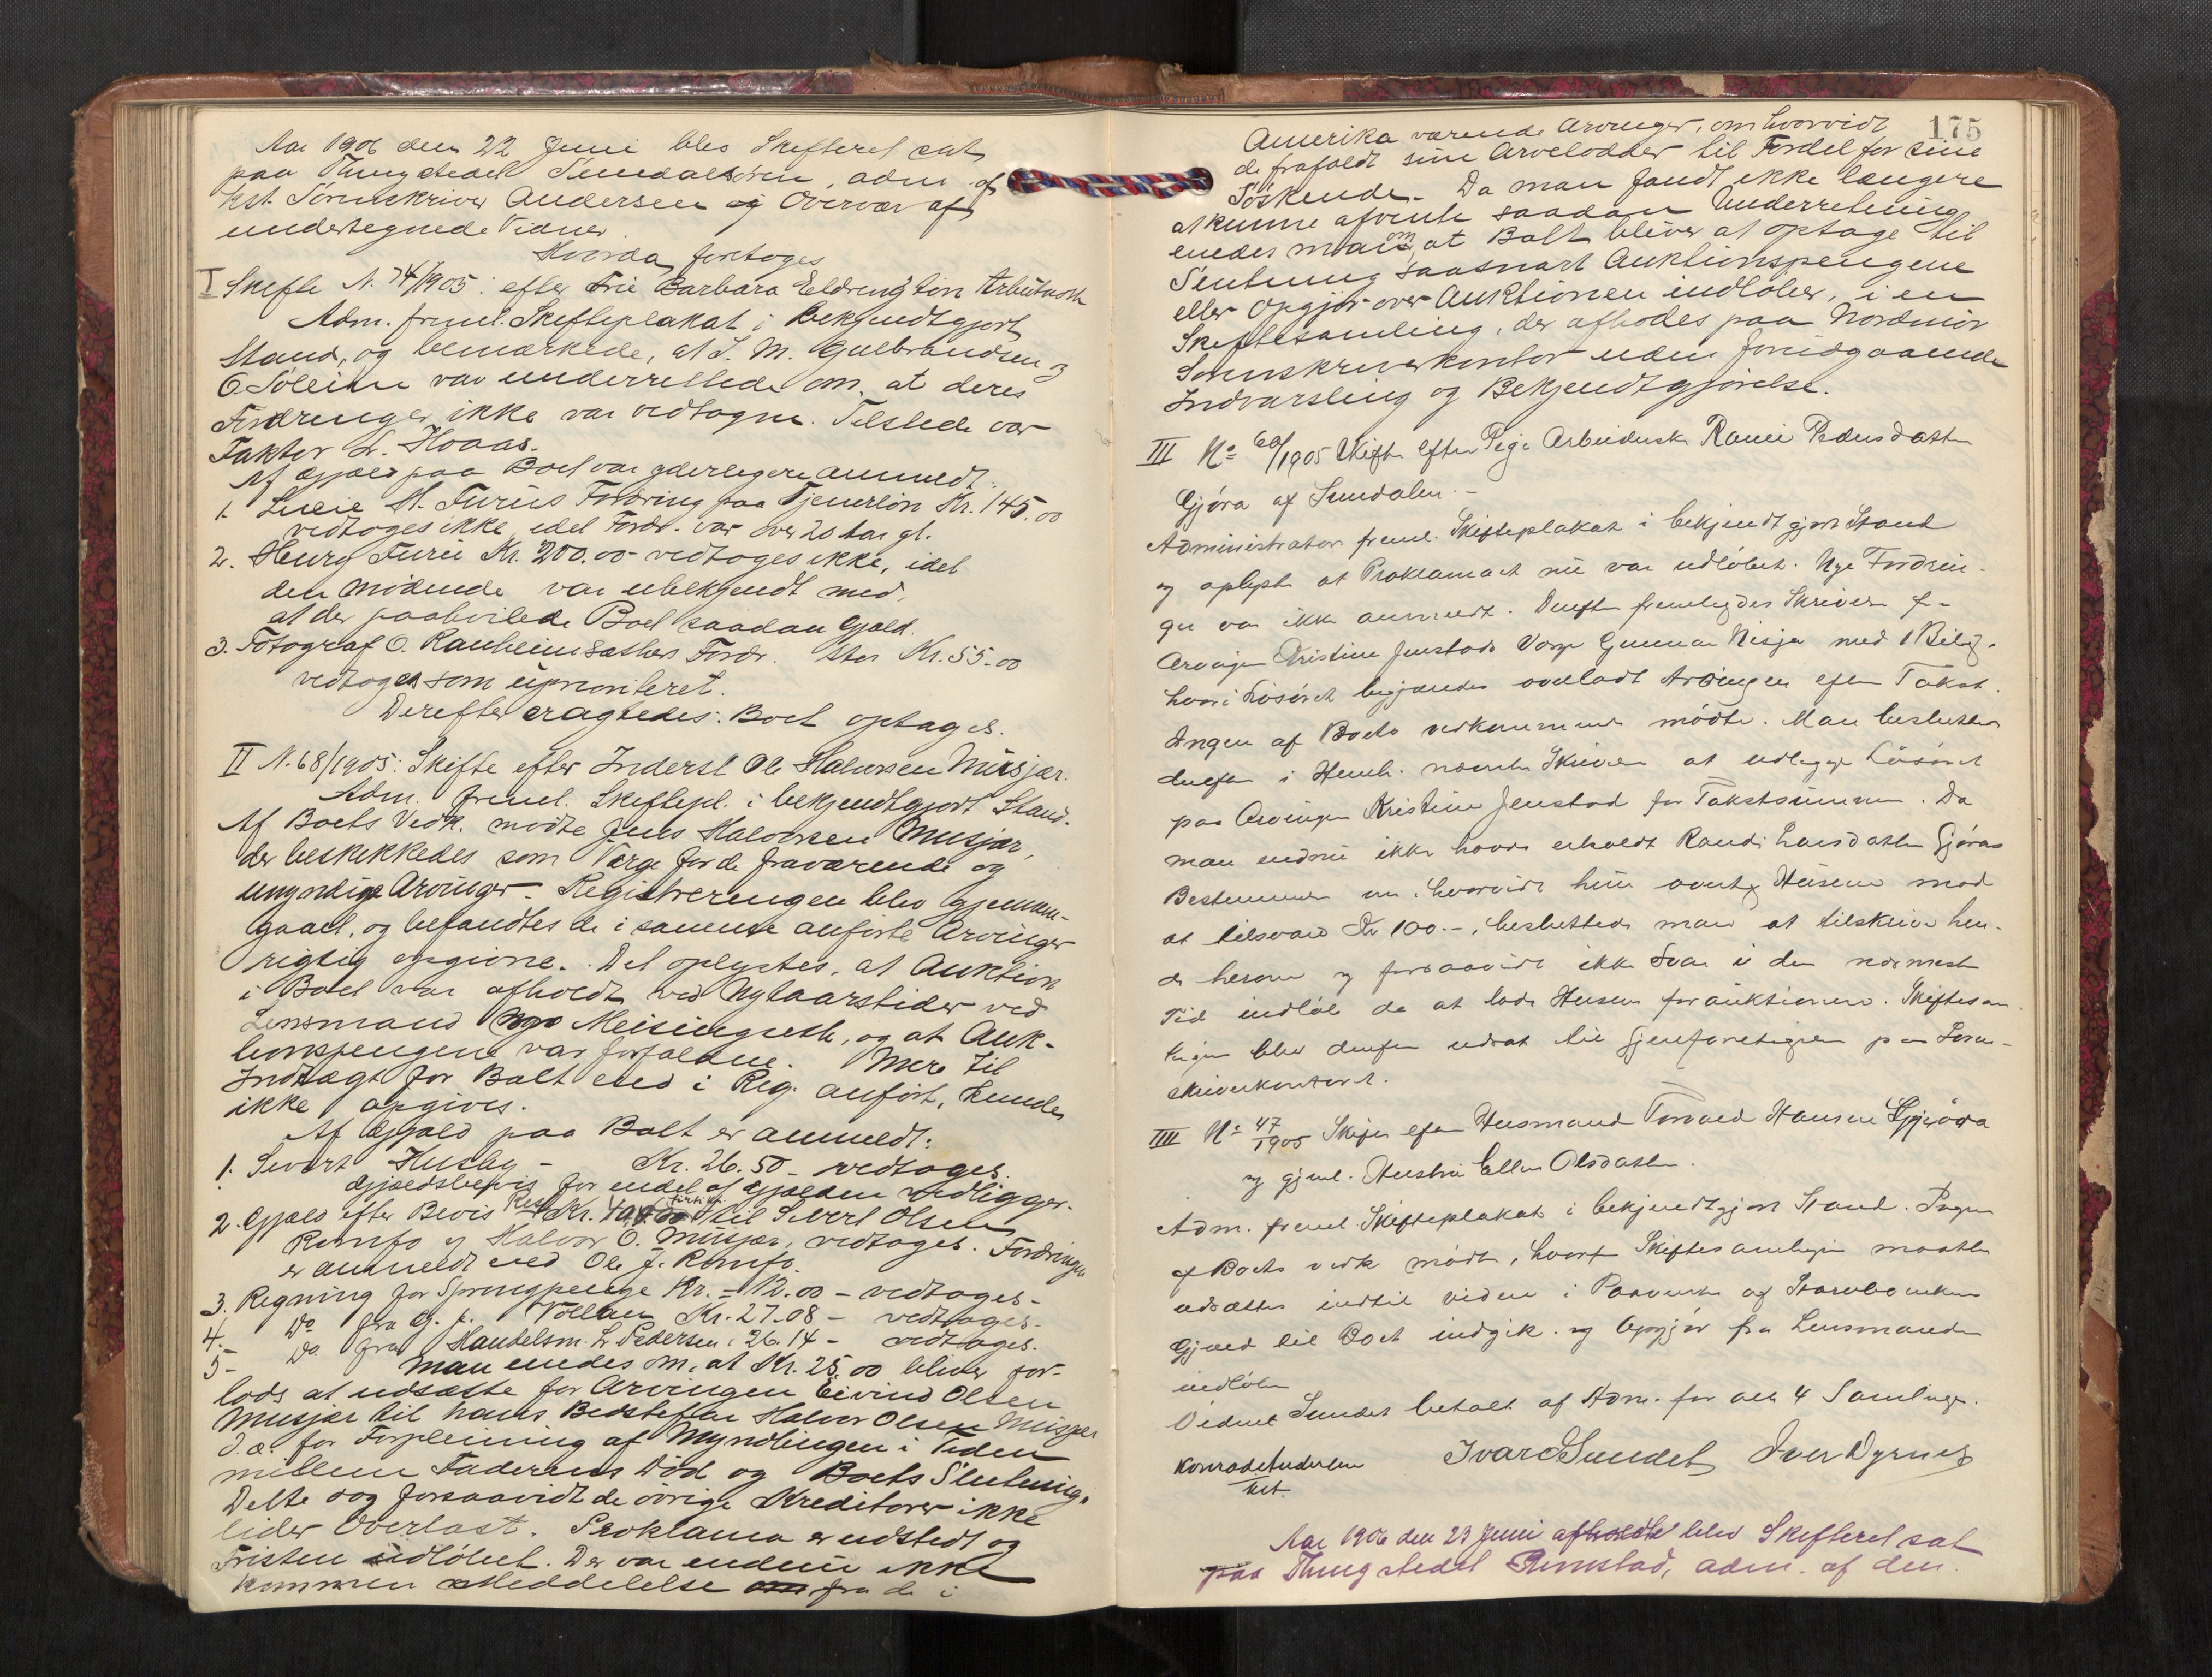 Aar 1906 den 22 Juni blev Skifteret sat
paa Thingstedet Sundalsøren, adm. af
kst. Sorenskriver Andersen og Overvær af
undertegnede Vidner.
Hvorda foretoges
I Skifte N. 74/1905: efter Frk. Barbara Eeldrington Arbutnoth
Adm. freml. Skifteplakat i bekjendtgjort
Stand, og bemærkede, at J. M. Gulbrandsen og
O. Soleim var underrettede om, at deres
Fordringer ikke var vedtagne. Tilstede var
Faktor L. Hoaas.
Af Gjæld paa Boet var yderligere anmeldt:
1. Lucie M. Furus Fordring paa Tjenerløn Kr. 145.00
vedtoges ikke, idet Fordr. var over 20 Aar gl.
2. Furu Kr. 200.00 vedtoges ikke, idet
den mødende var ubekjendt med,
at der paahvilede Boet saadan Gjæld.
3. Fotograf O. Ranheimsæthers Fordr. stor Kr. 55.00
vedtoges som uprioriteret.
Derefter eragtedes: Boet optages.
II N. 68/1905: Skifte efter Inderst Ole Halvorsen Musjær.
Adm. freml. Skiftepl. i bekjendtgjort Stand.
Af Boets Vedk. mødte Jens Halvorsen Musjær,
der beskikkedes som Værge for de fraværende og
umyndige Arvinger. Registreringen blev gjennem-
gaaet, og befandtes de i samme anførte Arvinger
rigtig opgivne. Det oplystes, at Auktion
i Boet var afholdt ved Nytaarstider ved
Lensmand Meisingseth, og at Auk-
tionspengene var forfaldne. Mere til
Indtægt for Boet end i Reg. anført, kunde
ikke opgives.
Af Gjæld paa Boet er anmeldt:
1. Sivert Husby - Kr. 26.50 - vedtages.
Gjældsbevis for endel af Gjælden vedligger.
2. Gjæld efter Bevis Rest Kr. til Sivert Olsen
Romfo og Halvor O. Musjær, vedtages. Fordringen
er anmeldt ved Ole J. Romfo.
3. Regning for Springpenge Kr. 12.00 - vedtages -
4. Do fra G. J. Vollan Kr. 27.08 - vedtages -
5 - Do. fra Handelsm. L. Pedersen, 26.14 - vedtages.
Man enedes om, at Kr. 25.00 bliver for-
lods at udsætte for Arvingen Eivind Olsen
Musjær til hans Bedstefar Halvor Olsen Musjær
d.æ. for Forpleining af Myndlingen i Tiden
mellem Faderens Død og Boets Slutning.
Dette dog forsaavidt de øvrige Kreditorer ikke
lider Overlast. Proklama er udstedt og
Fristen udløbet. Der var endnu ikke
kommen Meddelelse fra de i
175
Amerika værende Arvinger, om hvorvidt
de frafaldt sine Arvelodder til Fordel for sine
Søskende. Da man fandt ikke længere
at kunne afvente saadan Underretning
enedes man om, at Boet bliver at optage til
Slutning saasnart Auktionspengene
eller Opgjør over Auktionen indløber, i en
Skiftesamling, der afholdes paa Nordmør
Sorenskriverkontor uden foregaaende
Indvarsling og Bekjendtgjørelse.
III No 60/1905 Skifte efter Pige Arbeidersk. Pedersdatter
Gjøra af Sundalen. -
Administrator freml. Skifteplakat i bekjendtgjort Stand
og oplyste at Proklamaet nu var udløbet. Nye Fordrin-
ger var ikke anmeldt. Derefter fremlagdes Skrivelse fra
Arvingen Kristine Jenstads Værge Gunnar Nisja med 1 Bilag.
hvori Løsøret begjæredes overladt Arvingen efter Takst.
Ingen af Boets vedkommende mødte. Man besluttede
derefter i Henh. nævnte Skrivelse at udlægge Løsøret
paa Arvingen Kristine Jenstad for Takstsummen. Da
man endnu ikke havde erholdt Randi Larsdatter Gjøras
Bestemmelse om, hvorvidt hun overtog Husene mod
at tilsvare Kr 100.-, besluttede man at tilskrive hen-
de herom og forsaavidt ikke Svar i den nærmeste
Tid indløb da at lade Husene forauktionere. Skiftesam-
lingen blev derefter udsat til Gjenforetagelse paa Soren-
skriverkontoret.
IIII No 47/1905 Skifte efter Husmand Torvald Hansen Gjøra
og gjenl. Hustru Ellen Olsdatter.
Adm. freml. Skifteplakat i bekjendtgjort Stand. Ingen
af Boets vedk. mødte, hvorfor Skiftesamlingen maatte
udsættes indtil videre i Paavente af
Gjæld til Boet indgik og Opgjør fra Lensmanden
indløber
Vidnet Sundet betalt af Adm. for alle 4 Samlinger.
Konrad Andersen
kst.
Ivar Sundet Iver Dyrnes
Aar 1906 den 23 Juni afholdte blev Skifteret sat
paa Thingstedet Rimstad, adm. af den